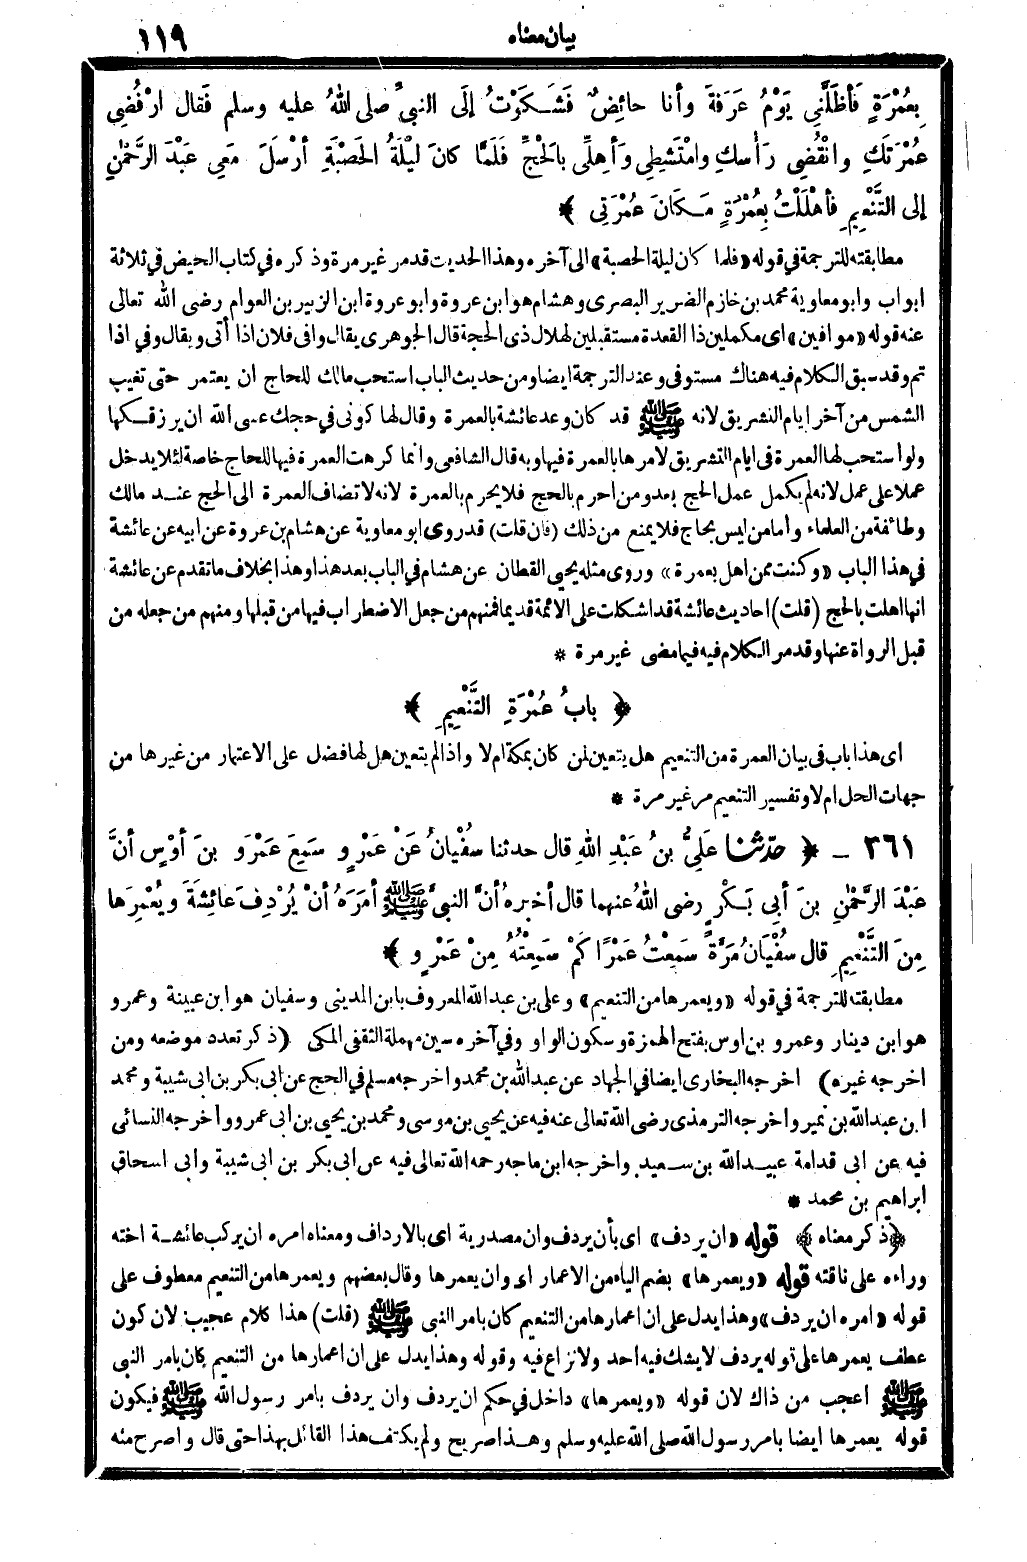 بيان معناه ١١٩
بِعُمْرَةٍ فَأَظَلَّنِي يَوْمُ عَرَفَةَ وأنا حائِضٌ فَشَكَوْتُ إلَى النبيِّ صلى اللهُ عليه وسلم فَقال ارْفُضِي
عُمْرَتَكِ وانْقُضِي رَأْسَكِ وامْتَشِطِي وَأهِلِّي بالحَجِّ فَلَمَّا كانَ لَيْلَةُ الحَصْبَةِ أرْسَلَ مَعِي عَبْدَ الرَّحْمٰنِ
إلى التَّنْعِيمِ فأهْلَلْتُ بِعُمْرَةٍ مَكَانَ عُمْرَتِي ﴾
مطابقته للترجمة في قوله «فلما كان ليلة الحصبة» الى آخره وهذا الحديث قد مر غير مرة وذكره في كتاب الحيض في ثلاثة
ابواب وابو معاوية محمد بن خازم الضرير البصرى وهشام هو ابن عروة وابو عروة ابن الزبير بن العوام رضى الله تعالى
عنه قوله «موافين» اى مكملين ذا القعدة مستقبلين لهلال ذى الحجة قال الجوهرى يقال وافى فلان اذا أتى ويقال وفي اذا
تم وقد سبق الكلام فيه هناك مستوفى وعند الترجمة ايضا ومن حديث الباب استحب مالك للحاج ان يعتمر حتى تغيب
الشمس من آخر ايام التشريق لانه ﷺ قد كان وعد عائشة بالعمرة وقال لها كونى في حجك عسى الله ان يرزقكها
ولو استحب لها العمرة فى ايام التشريق لامرها بالعمرة فيها وبه قال الشافعى وانما كرهت العمرة فيها للحاج خاصة لئلا يدخل
عملا على عمل لانه لم يكمل عمل الحج بعد ومن احرم بالحج فلا يحرم بالعمرة لانه لا تضاف العمرة الى الحج عند مالك
وطائفة من العلماء وأما من ليس بحاج فلا يمنع من ذلك (فان قلت) قد روى ابو معاوية عن هشام بن عروة عن ابيه عن عائشة
في هذا الباب «وكنت ممن اهل بعمرة» وروى مثله يحيى القطان عن هشام في الباب بعد هذا وهذا بخلاف ما تقدم عن عائشة
انها اهلت بالحج (قلت) احاديث عائشة قد اشكلت على الائمة قديما فمنهم من جعل الاضطراب فيها من قبلها ومنهم من جعله من
قبل الرواة عنها وقد مر الكلام فيه فيما مضى غير مرة *
﴿ بابُ عُمْرَةِ التَّنْعِيمِ ﴾
اى هذا باب فى بيان العمرة من التنعيم هل يتعين لمن كان بمكة ام لا واذا لم يتعين هل لها فضل على الاعتمار من غيرها من
جهات الحل ام لا وتفسير التنعيم مر غير مرة *
٣٦١ - ﴿ حدّثنا عَلِيُّ بنُ عَبْدِ اللهِ قال حدثنا سُفْيانُ عَنْ عَمْرٍو سَمِعَ عَمْرَو بنَ أوْسٍ أنَّ
عَبْدَ الرَّحْمٰنِ بنَ أبِي بَكْرٍ رضى اللهُ عنهما قال أخبرهُ أنَّ النبيَّ ﷺ أمَرَهُ أنْ يُرْدِفَ عائِشَةَ ويُعْمِرَها
مِنَ التَّنْعِيمِ قال سُفْيَانُ مَرَّةً سَمِعْتُ عَمْرًا كَمْ سَمِعْتُهُ مِنْ عَمْرٍو ﴾
مطابقته للترجمة في قوله «ويعمرها من التنعيم» وعلى بن عبد الله المعروف بابن المدينى وسفيان هو ابن عيينة وعمرو
هو ابن دينار وعمرو بن اوس بفتح الهمزة وسكون الواو وفي آخره سين مهملة الثقفى المكى (ذكر تعدد موضعه ومن
اخرجه غيره) اخرجه البخارى ايضا في الجهاد عن عبد الله بن محمد واخرجه مسلم في الحج عن ابى بكر بن ابى شيبة ومحمد
ابن عبد الله بن نمير واخرجه الترمذى رضى الله تعالى عنه فيه عن يحيى بن موسى ومحمد بن يحيى بن ابى عمر وواخرجه النسائى
فيه عن ابى قدامة عبيد الله بن سعيد واخرجه ابن ماجه رحمه الله تعالى فيه عن ابى بكر بن ابى شيبة وابى اسحاق
ابراهيم بن محمد *
﴿ذكر معناه﴾ قوله «ان يردف» اى بأن يردف وان مصدرية اى بالارداف ومعناه امره ان يركب عائشة اخته
وراءه على ناقته قوله «ويعمرها» بضم الياء من الاعمار اى وان يعمرها وقال بعضهم ويعمرها من التنعيم معطوف على
قوله «امره ان يردف» وهذا يدل على ان اعمارها من التنعيم كان بامر النبى ﷺ (قلت) هذا كلام عجيب لان كون
عطف يعمرها على قوله يردف لا يشك فيه احد ولا نزاع فيه وقوله وهذا يدل على ان اعمارها من التنعيم كان بامر النبى
ﷺ اعجب من ذاك لان قوله «ويعمرها» داخل في حكم ان يردف وان يردف بامر رسول الله ﷺ فيكون
قوله يعمرها ايضا بامر رسول الله صلى الله عليه وسلم وهذا صريح ولم يكتف هذا القائل بهذا حتى قال واصرح منه